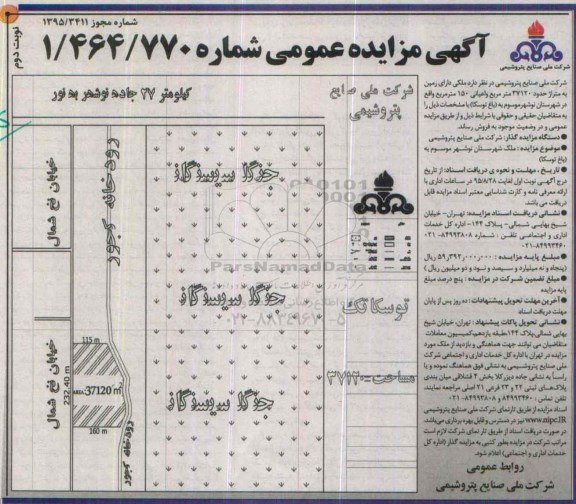 شماره مجوز ۱۳۹۵/۳۴۱۱
نوبت دوم
آگهی مزایده عمومی شماره ۱/۴۶۴/۷۷۰
شرکت ملی صنایع پتروشیمی
شرکت ملی صنایع پتروشیمی در نظر دارد ملکی دارای زمین
به متراژ حدود ۳۷۱۲۰ متر مربع واعیانی ۱۵۰ مترمربع واقع
در شهرستان نوشهر موسوم به (باغ توسکا) با مشخصات ذیل را
به متقاضیان حقیقی و حقوقی با شرایط ذیل و از طریق مزایده
عمومی و در وضعیت موجود به فروش رساند.
● دستگاه مزایده گذار: شرکت ملی صنایع پتروشیمی
● موضوع مزایده : ملک شهرستان نوشهر موسوم به
(باغ توسکا)
● تاریخ ، مهلت و نحوه ی دریافت اسناد: از تاریخ
درج آگهی نوبت اول لغایت ۹۵/۸/۲۸ در ساعات اداری با
ارائه معرفی نامه و کارت شناسایی معتبر اسناد مزایده قابل
دریافت می باشد.
● نشانی دریافت اسناد مزایده: تهران- خیابان
شیخ بهایی شمالی- پلاک ۱۴۴- اداره کل خدمات
اداری و اجتماعی تلفن : شماره ۸۴۹۹۳۸۰۸-۰۲۱
۰۲۱-۸۴۹۹۳۴۶۰
● مبلغ پایه مزایده : ۵۹,۳۹۲,۰۰۰,۰۰۰ ریال
(پنجاه و نه میلیارد و سیصد و نود و دو میلیون ریال)
● مبلغ تضمین شرکت در مزایده : پنج درصد مبلغ
پایه مزایده
● آخرین مهلت تحویل پیشنهادات : ده روز پس از پایان
مهلت دریافت اسناد
● نشانی تحویل پاکات پیشنهاد : تهران، خیابان شیخ
بهایی شمالی پلاک ۱۴۴ طبقه یازدهم کمیسیون معاملات
متقاضیان می توانند جهت هماهنگی و بازدید از ملک مورد
مزایده در تهران با اداره کل خدمات اداری و اجتماعی شرکت
ملی صنایع پتروشیمی به نشانی فوق هماهنگ نموده و یا
رأساً به نشانی جاده دیزی کلا بخش ۲ قشلاقی میان بندی
پلاک‌های ثبتی ۲۲ و ۲۳ فرعی ۲۱ اصلی مراجعه نمایند.
تلفن تماس : ۸۴۹۹۳۴۶۰ و ۸۴۹۹۳۸۰۸-۰۲۱
اسناد مزایده از طریق تارنمای شرکت ملی صنایع پتروشیمی
www.nipc.IR نیز در دسترس و قابل بهره برداری می‌باشد.
در صورت دریافت اسناد از طریق تارنمای شرکت لازم است
مراتب شرکت در مزایده بطور کتبی به مزایده گذار (اداره کل
خدمات اداری و اجتماعی) اعلام شود.
روابط عمومی
شرکت ملی صنایع پتروشیمی
شرکت ملی صنایع
پتروشیمی
توسکا تک
مساحت=۳۷۱۲۰
کیلومتر ۲۷ جاده نوشهر به نور
جنگل سیسنگان
جنگل سیسنگان
جنگل سیسنگان
رودخانه کجور
رودخانه کجور
خیابان فتح شمال
خیابان فتح شمال
115 m
232.40 m
AREA:37120 m²
160 m
ParsNamadData
۰۲۱-۸۸۳۴۹۶۷۰-۵